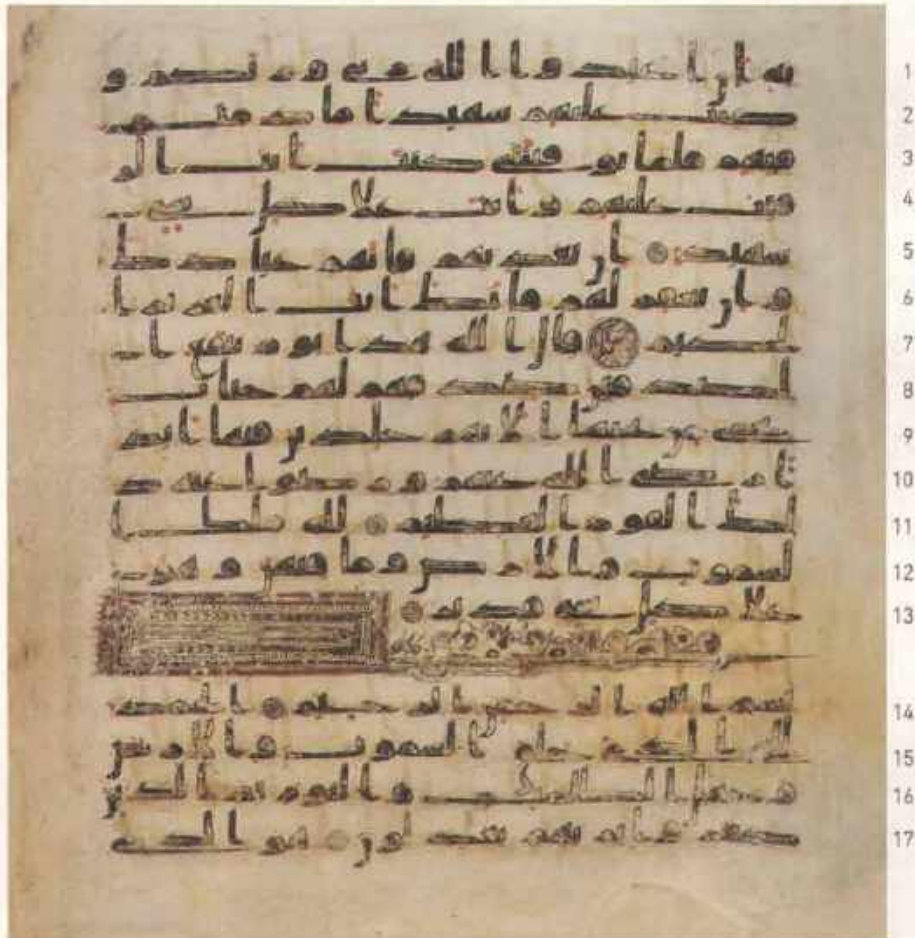 1 به ان اعبدوا الله ربي وربكم و
2 كنت عليهم شهيدا ما دمت
3 فيهم فلما توفيتني كنت انت الر
4 قيب عليهم وانت على كل شي
5 شهيد ان تعذبهم فانهم عبادك
6 وان تغفر لهم فانك انت العزيز ا
7 لحكيم قال الله هذا يوم ينفع ا
8 لصدقين صدقهم لهم جنات
9 تجري من تحتها الانهر خلدين فيها ابد
10 ا رضي الله عنهم ورضوا عنه ذ
11 لك الفوز العظيم لله ملك ا
12 لسموت والارض وما فيهن وهو
13 على كل شي قدير
14 بسم الله الرحمن الرحيم الحمد
15 لله الذي خلق السموت والارض
16 وجعل الظلمت والنور ثم الذين
17 كفروا بربهم يعدلون هو الذي